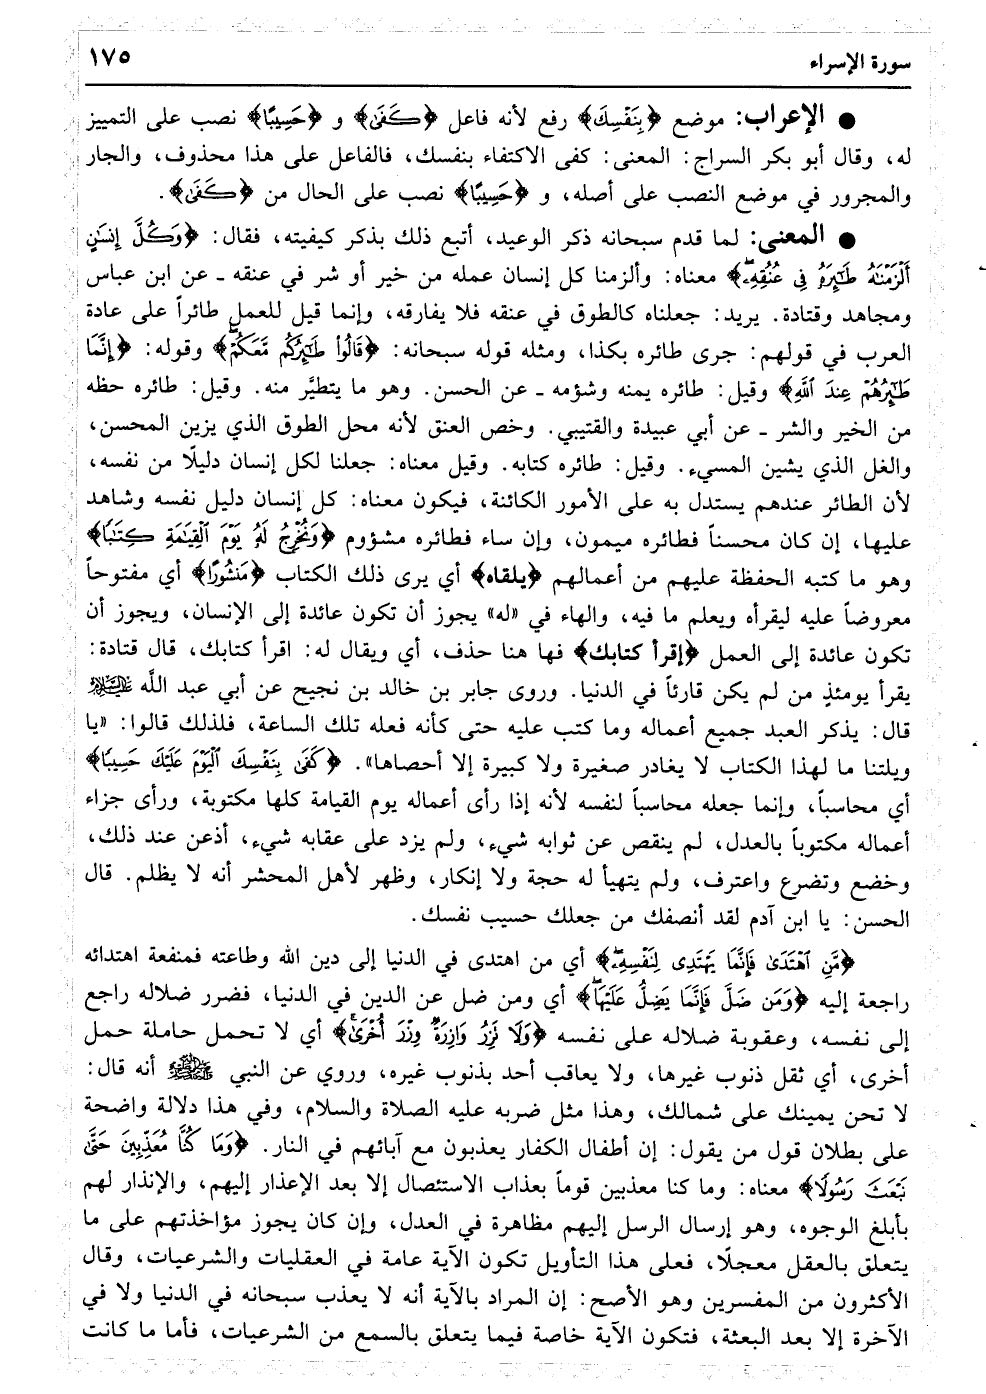 سورة الإسراء ١٧٥
● الإعراب: موضع ﴿بِنَفْسِكَ﴾ رفع لأنه فاعل ﴿كَفَىٰ﴾ و ﴿حَسِيبًا﴾ نصب على التمييز
له، وقال أبو بكر السراج: المعنى: كفى الاكتفاء بنفسك، فالفاعل على هذا محذوف، والجار
والمجرور في موضع النصب على أصله، و ﴿حَسِيبًا﴾ نصب على الحال من ﴿كَفَىٰ﴾.
● المعنى: لما قدم سبحانه ذكر الوعيد، أتبع ذلك بذكر كيفيته، فقال: ﴿وَكُلَّ إِنسَٰنٍ
أَلْزَمْنَٰهُ طَٰٓئِرَهُۥ فِى عُنُقِهِۦ﴾ معناه: وألزمنا كل إنسان عمله من خير أو شر في عنقه ـ عن ابن عباس
ومجاهد وقتادة. يريد: جعلناه كالطوق في عنقه فلا يفارقه، وإنما قيل للعمل طائراً على عادة
العرب في قولهم: جرى طائره بكذا، ومثله قوله سبحانه: ﴿قَالُوا۟ طَٰٓئِرُكُم مَّعَكُمْ﴾ وقوله: ﴿إِنَّمَا
طَٰٓئِرُهُمْ عِندَ ٱللَّهِ﴾ وقيل: طائره يمنه وشؤمه ـ عن الحسن. وهو ما يتطيَّر منه. وقيل: طائره حظه
من الخير والشر ـ عن أبي عبيدة والقتيبي. وخص العنق لأنه محل الطوق الذي يزين المحسن،
والغل الذي يشين المسيء. وقيل: طائره كتابه. وقيل معناه: جعلنا لكل إنسان دليلًا من نفسه،
لأن الطائر عندهم يستدل به على الأمور الكائنة، فيكون معناه: كل إنسان دليل نفسه وشاهد
عليها، إن كان محسناً فطائره ميمون، وإن ساء فطائره مشؤوم ﴿وَنُخْرِجُ لَهُۥ يَوْمَ ٱلْقِيَٰمَةِ كِتَٰبًا﴾
وهو ما كتبه الحفظة عليهم من أعمالهم ﴿يلقاه﴾ أي يرى ذلك الكتاب ﴿مَنشُورًا﴾ أي مفتوحاً
معروضاً عليه ليقرأه ويعلم ما فيه، والهاء في «له» يجوز أن تكون عائدة إلى الإنسان، ويجوز أن
تكون عائدة إلى العمل ﴿إقرأ كتابك﴾ فها هنا حذف، أي ويقال له: اقرأ كتابك، قال قتادة:
يقرأ يومئذٍ من لم يكن قارئاً في الدنيا. وروى جابر بن خالد بن نجيح عن أبي عبد اللَّه عليه السلام
قال: يذكر العبد جميع أعماله وما كتب عليه حتى كأنه فعله تلك الساعة، فلذلك قالوا: «يا
ويلتنا ما لهذا الكتاب لا يغادر صغيرة ولا كبيرة إلا أحصاها». ﴿كَفَىٰ بِنَفْسِكَ ٱلْيَوْمَ عَلَيْكَ حَسِيبًا﴾
أي محاسباً، وإنما جعله محاسباً لنفسه لأنه إذا رأى أعماله يوم القيامة كلها مكتوبة، ورأى جزاء
أعماله مكتوباً بالعدل، لم ينقص عن ثوابه شيء، ولم يزد على عقابه شيء، أذعن عند ذلك،
وخضع وتضرع واعترف، ولم يتهيأ له حجة ولا إنكار، وظهر لأهل المحشر أنه لا يظلم. قال
الحسن: يا ابن آدم لقد أنصفك من جعلك حسيب نفسك.
﴿مَّنِ ٱهْتَدَىٰ فَإِنَّمَا يَهْتَدِى لِنَفْسِهِۦ﴾ أي من اهتدى في الدنيا إلى دين الله وطاعته فمنفعة اهتدائه
راجعة إليه ﴿وَمَن ضَلَّ فَإِنَّمَا يَضِلُّ عَلَيْهَا﴾ أي ومن ضل عن الدين في الدنيا، فضرر ضلاله راجع
إلى نفسه، وعقوبة ضلاله على نفسه ﴿وَلَا تَزِرُ وَازِرَةٌ وِزْرَ أُخْرَىٰ﴾ أي لا تحمل حاملة حمل
أخرى، أي ثقل ذنوب غيرها، ولا يعاقب أحد بذنوب غيره، وروي عن النبي ﷺ أنه قال:
لا تحن يمينك على شمالك، وهذا مثل ضربه عليه الصلاة والسلام، وفي هذا دلالة واضحة
على بطلان قول من يقول: إن أطفال الكفار يعذبون مع آبائهم في النار. ﴿وَمَا كُنَّا مُعَذِّبِينَ حَتَّىٰ
نَبْعَثَ رَسُولًا﴾ معناه: وما كنا معذبين قوماً بعذاب الاستئصال إلا بعد الإعذار إليهم، والإنذار لهم
بأبلغ الوجوه، وهو إرسال الرسل إليهم مظاهرة في العدل، وإن كان يجوز مؤاخذتهم على ما
يتعلق بالعقل معجلًا، فعلى هذا التأويل تكون الآية عامة في العقليات والشرعيات، وقال
الأكثرون من المفسرين وهو الأصح: إن المراد بالآية أنه لا يعذب سبحانه في الدنيا ولا في
الآخرة إلا بعد البعثة، فتكون الآية خاصة فيما يتعلق بالسمع من الشرعيات، فأما ما كانت